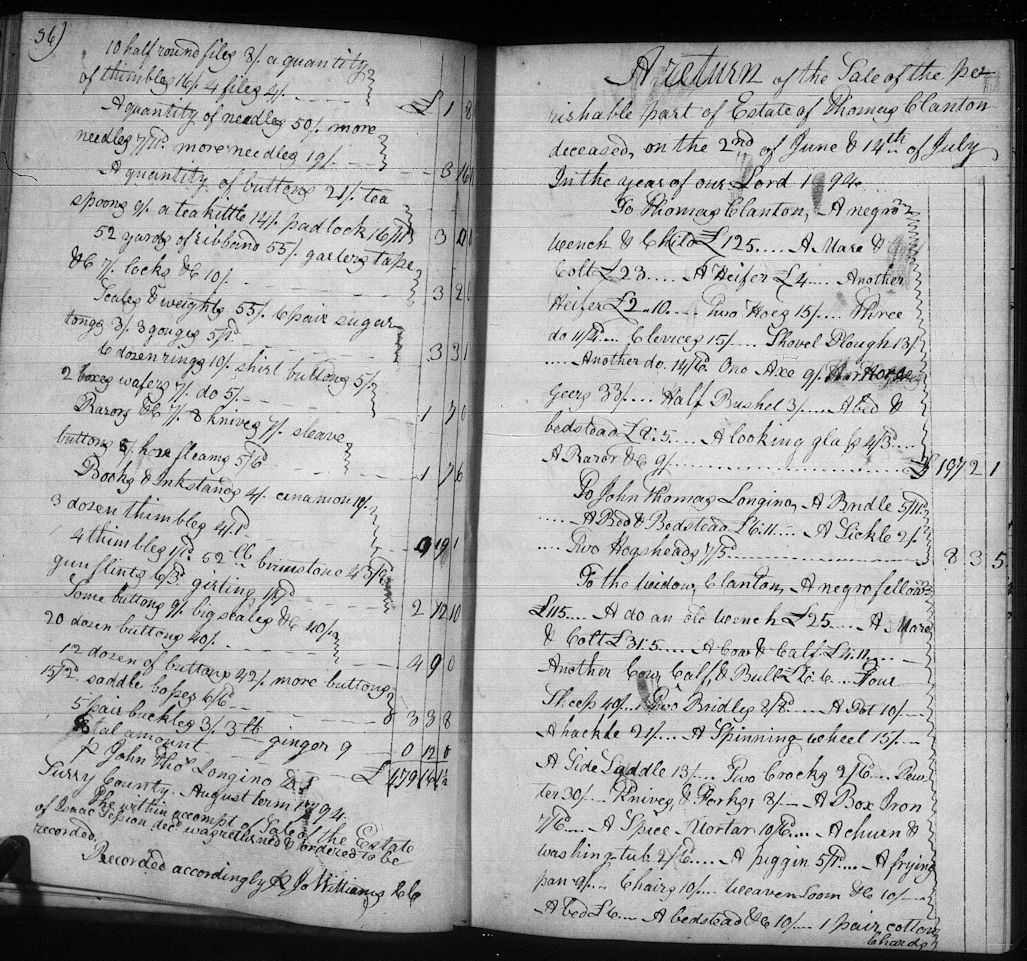 56)
10 half round files 8/. a quantity
of thimbles 16/. 4 files 4/. £ 1 8
A quantity of needles 50/. more
needles 7/1d. more needles 19/. 3 16
A quantity of buttons 21/. tea
spoons 9/. a tea kittle 14/. padlock 16/11d 3
52 yards of ribband 55/. garters tape
&C 7/. locks &C 10/. 3 2
Scales & weights 55/. 6 pair sugar
tongs 3/. 3 gouges 5/1d. 3 3 1
6 dozen rings 10/. shirt buttons 5/.
2 boxes wafers 7/. do 5/. 1 7 0
Razors &C 7/. 8 knives 7/. sleave
buttons 8/. horse fleams 5/6d 1 7 6
Books & Inkstands 4/. cinamon 10/.
3 dozen thimbles 4/1d. 0 19 1
4 thimbles 1/d. 52 lb brimstone
gun flints 6/3d. girting 2 12 10
Some buttons 9/. big scales &C 40/.
20 dozen buttons 40/. 4 9 0
12 dozen of buttons 42/. more buttons
15/2d. saddle bosses 6/6d 3 3 8
5 pair buckles 3/. 3 lb ginger 9 0 12 0
total amount £ 479
John Thos Longino
Surry County. August term 1794.
The within accompt of Sale of the Estate
of Isaac decd was returned & ordered to be
recorded
Recorded accordingly Jo Williams CC
A return of the Sale of the pe-
rishable part of Estate of Thomas Clanton
deceased, on the 2nd of June & 14th of July
In the year of our Lord 1 94.
To Thomas Clanton, A negro
wench & Child £125..... A Mare &
Colt £23..... A Heifer £4.... Another
Heifer £2..10.... Two Hoes 15/.... Three
do 11/2d.... Clevices 15/... Shovel Plough 13/
.... Another do. 14/6d. One Axe 9/. Horse
Geers 33/.... Half Bushel 3/.... A bed &
bedstead £8..5.... A looking glass 4/3d....
A Razor &C 9/. £ 197 2 1
To John Thomas Longino, A Bridle 5/11d.
..... A Bed & Bedstead £6..11.... A Sickle 2/.
.... Two Hogsheads 7/5d 8 3 5
To the widow, Clanton, A negro fellow
£115.... A do an old wench £25.... A Mare
& Colt £31..5.... A Cow & Calf £4..11....
Another Cow, Calf, & Bull £6..6.... Four
Sheep 40/.. Two Bridles 2/8d..... A Pot 10/....
A hackle 21/... A Spinning wheel 15/...
A Side Saddle 13/... Two Crocks 2/6.... Pew-
ter 30/... Knives & Forks, 8/... A Box Iron
7/6.... A Spice Mortar 10/6.... A churn &
washing tub 2/6..... A piggin 5/1d... A frying
pan 9/... Chairs 10/... weaven Loom &C 10/...
A bed £6.... A bedstead &C 10/.... 1 pair cotton
Chards